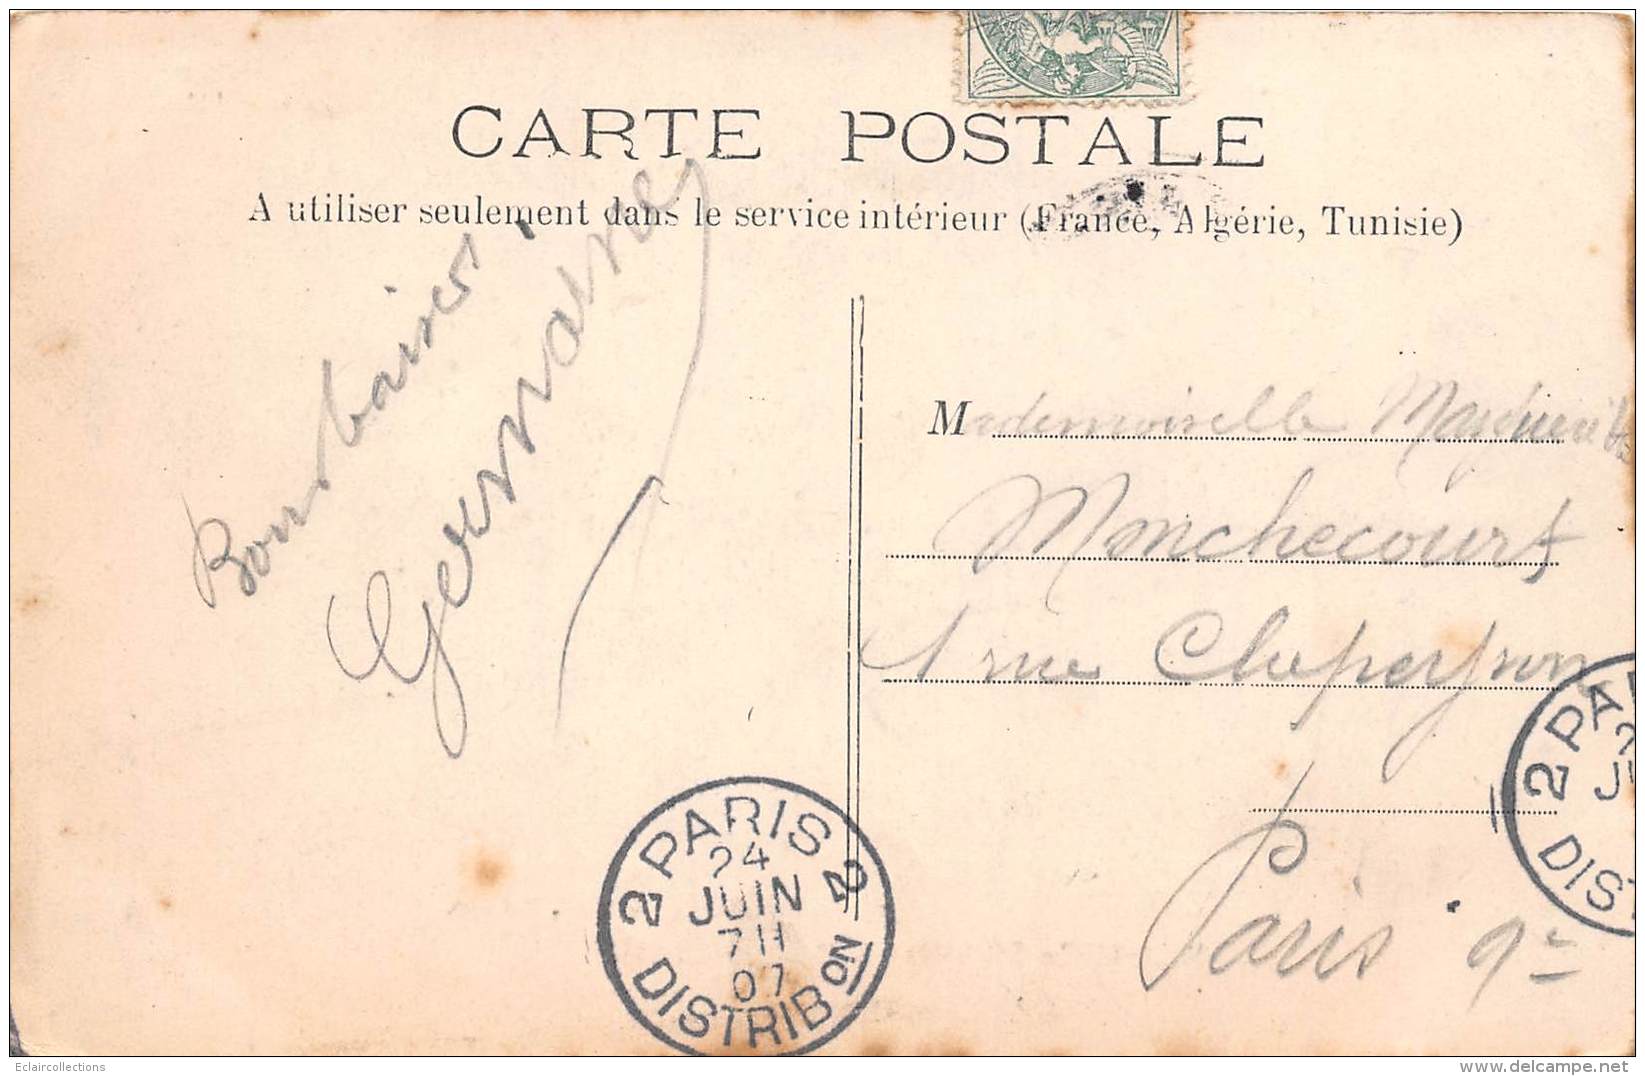 CARTE POSTALE
A utiliser seulement dans le service intérieur (France, Algérie, Tunisie)
Bons baisers
Germaine
Mademoiselle Marguerite
Monchecourt
1 rue Clapeyron
Paris 9e
2 PARIS 2
24
JUIN
7H
07
DISTRIBON
2 PA
JU
DIST
Eclaircollections
www.delcampe.net